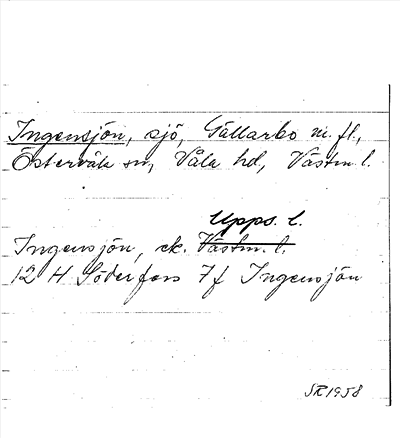 Ingensjön, sjö, Gällarbo m. fl.,
Östervåla sn, Våla hd, Västm. l.
Upps. l.
Ingensjön, ek. Västm. l.
12 H Söderfors 7 f Ingensjön
SR 1958